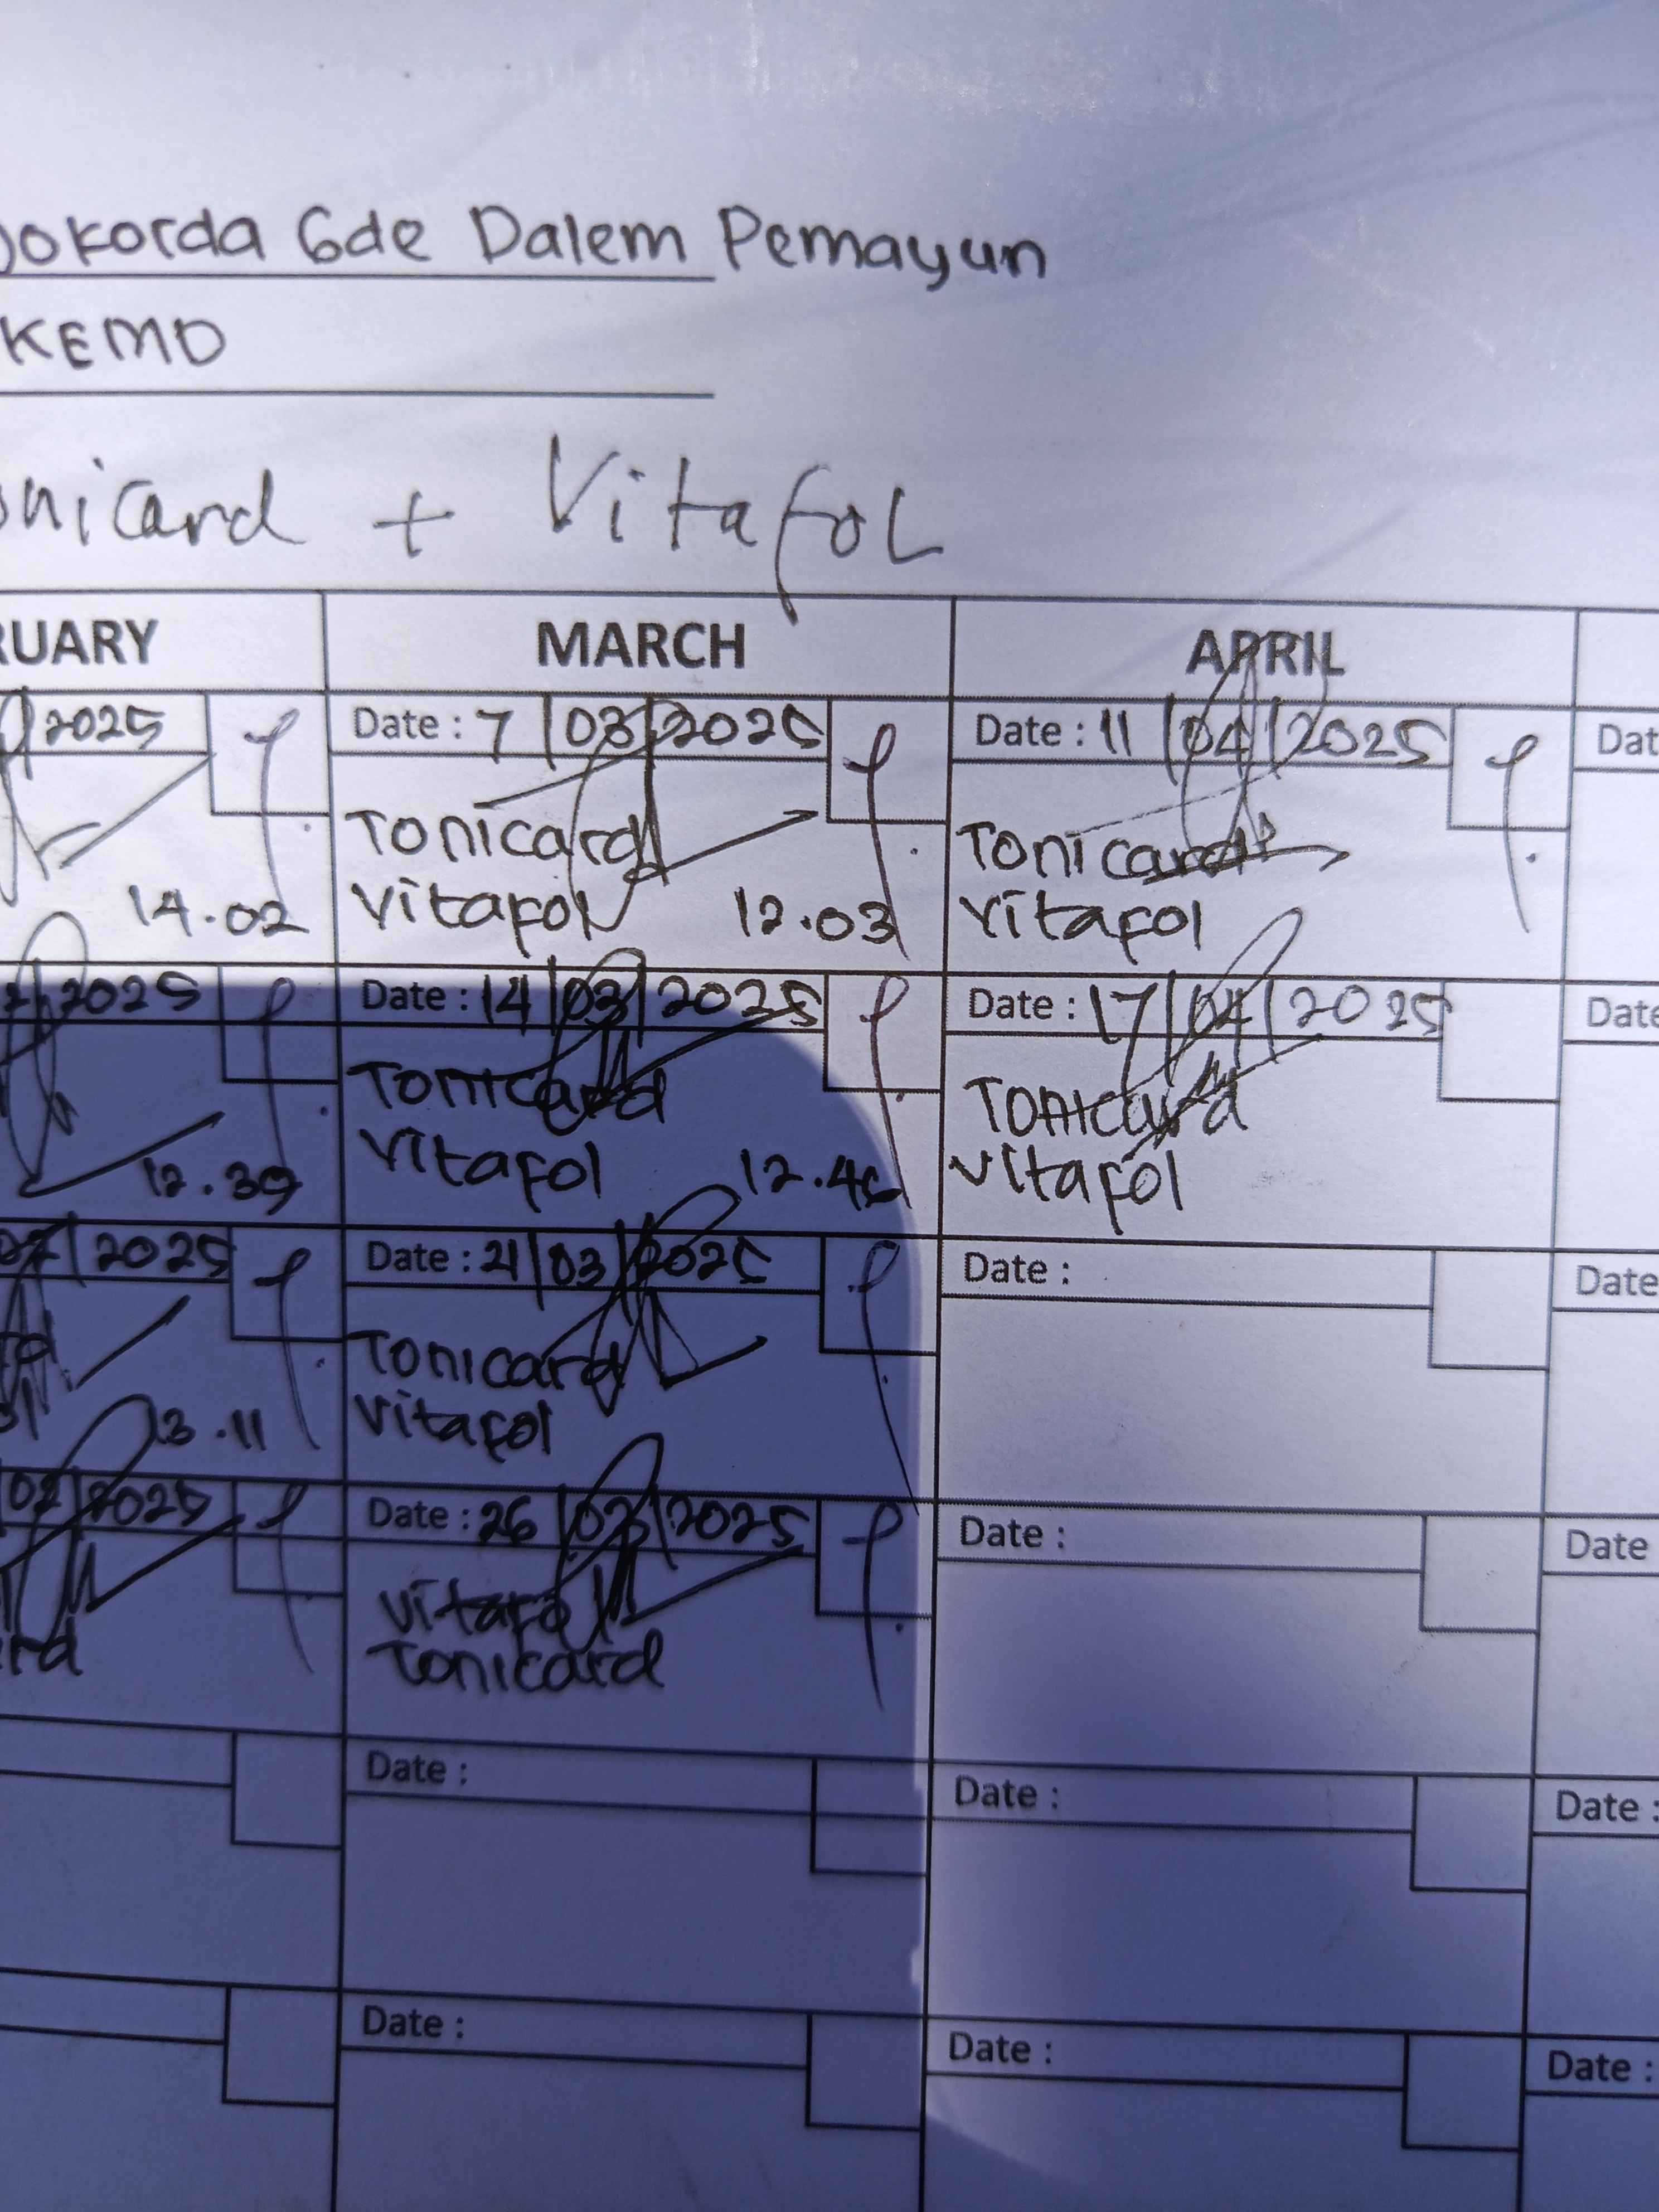 okorda Gde Dalem Pemayun
KEMO
onicard + Vitafol
RUARY MARCH APRIL
2025 Date : 7/03/2025 Date : 11/04/2025 Dat
Tonicard Tonicard
14.02 Vitafol 12.03 Vitafol
2025 Date : 14/03/2025 Date : 17/04/2025 Date
Tonicard Tonicard
12.39 Vitafol Vitafol
2025 Date : 21/03/2025 Date : Date
Tonicard
13.11 Vitafol
02/2025 Date : 26/03/2025 Date : Date
Vitafol
rd Tonicard
Date : Date : Date :
Date : Date : Date :